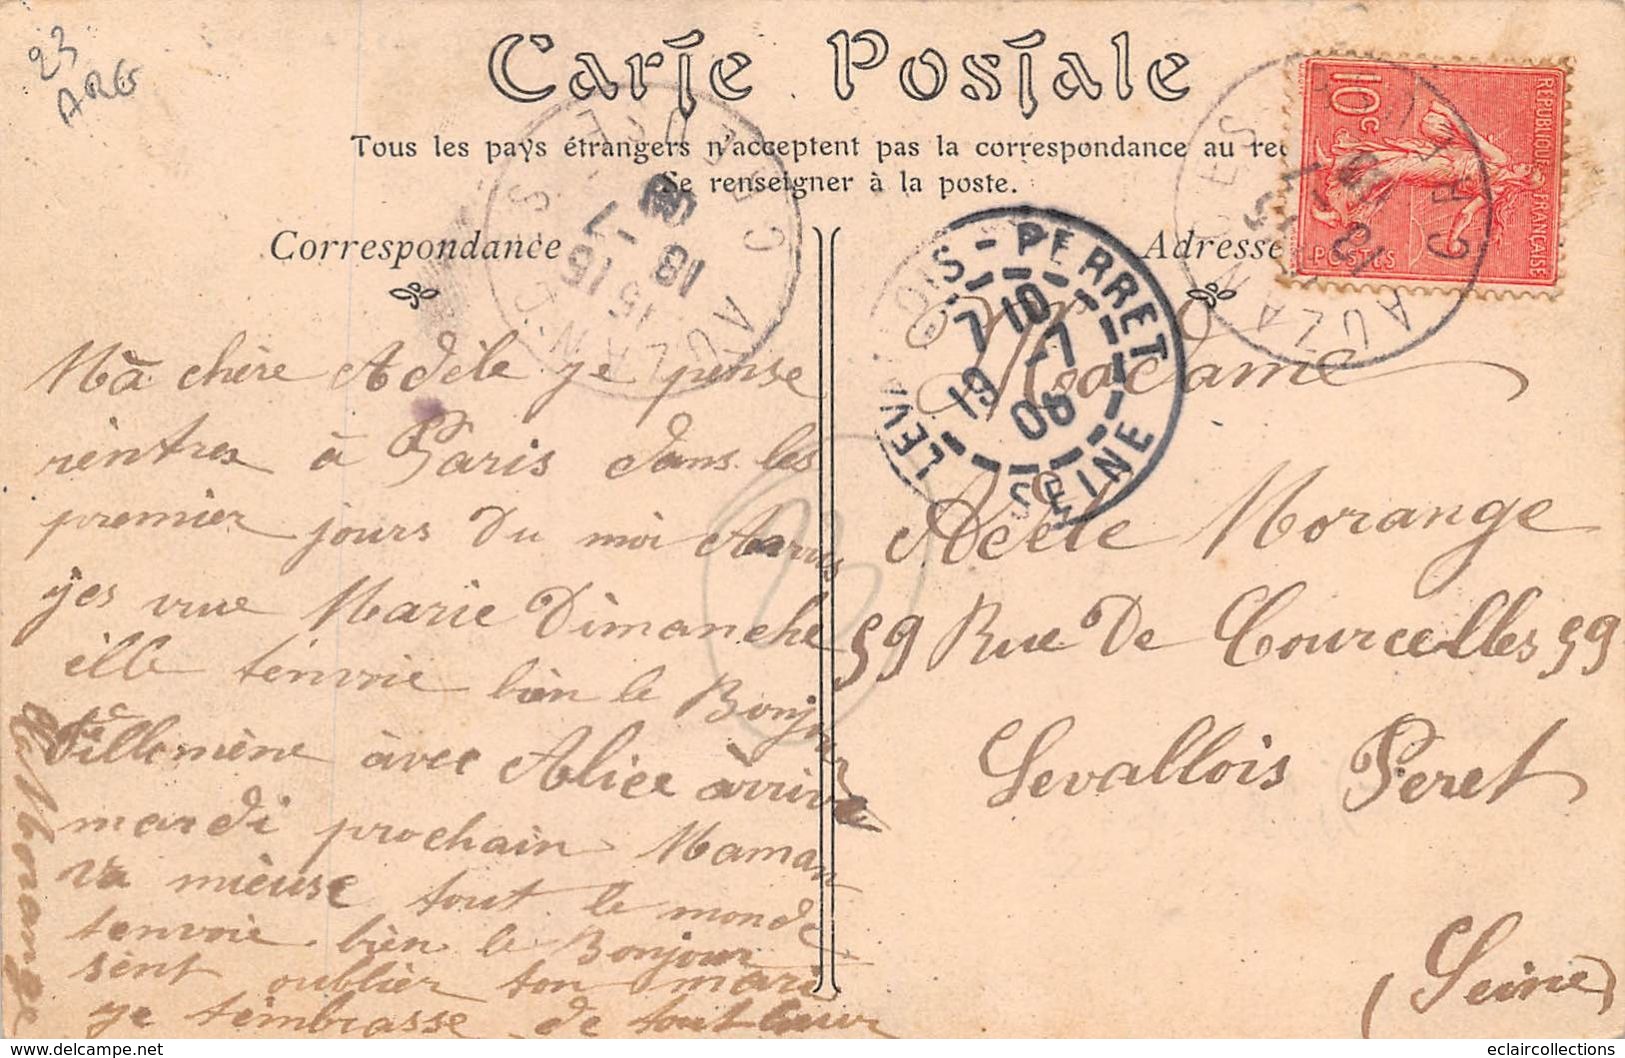 23
ARG
Carte Postale
Tous les pays étrangers n'acceptent pas la correspondance au rec
Se renseigner à la poste.
Correspondance
Adresse
RÉPUBLIQUE FRANÇAISE
10c
POSTES
AUZANCES
CREUSE
15 15
18 -7
06
AUZANCES
CREUSE
LEVALLOIS-PERRET
SEINE
7 10
-7
19 06
Ma chère Adèle je pense
rentres à Paris dans les
premier jours du moi
jes vue Marie Dimanche
ille tenvoie bien le Bonjour
Fillemène avec Alice arrive
mardi prochain Maman
va mieuse tout le monde
tenvoie bien le Bonjour
sent oublier ton mari
je tembrasse de tout cœur
Morange
Madame
Adèle Morange
59 Rue De Courcelles 59
Levallois Peret
(Seine)
eclaircollections